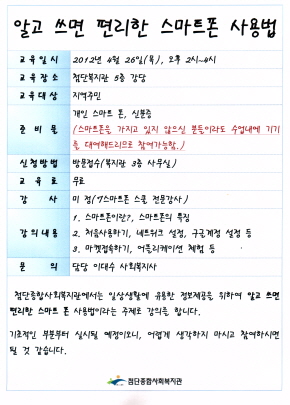 알고 쓰면 편리한 스마트폰 사용법
교 육 일 시 2012년 4월 26일(목), 오후 2시~4시
교 육 장 소 첨단복지관 5층 강당
교 육 대 상 지역주민
준 비 물 개인 스마트 폰, 신분증
(스마트폰을 가지고 있지 않으신 분들이라도 수업내에 기기
를 대여해드리므로 참여가능함.)
신 청 방 법 방문접수(복지관 3층 사무실)
교 육 료 무료
강 사 미 정(T스마트폰 스쿨 전문강사)
강 의 내 용 1. 스마트폰이란?, 스마트폰의 특징
2. 처음사용하기, 네트워크 설정, 구글계정 설정 등
3. 마켓접속하기, 어플리케이션 체험 등
문 의 담당 이대수 사회복지사
첨단종합사회복지관에서는 일상생활에 유용한 정보제공을 위하여 알고 쓰면
편리한 스마트 폰 사용법이라는 주제로 강의를 합니다.
기초적인 부분부터 실시될 예정이오니, 어렵게 생각하지 마시고 참여하시면
될 것 같습니다.
첨단종합사회복지관